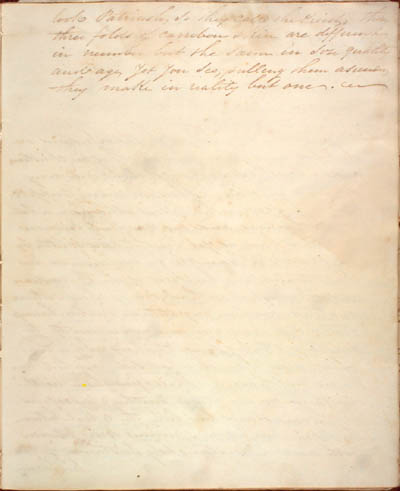 look Patrick, So they call the Priest, the
three folds of carribou skin are different
in number but the same in size quality
and age, Yet you see, pulling them asunder
they make in reality but one.